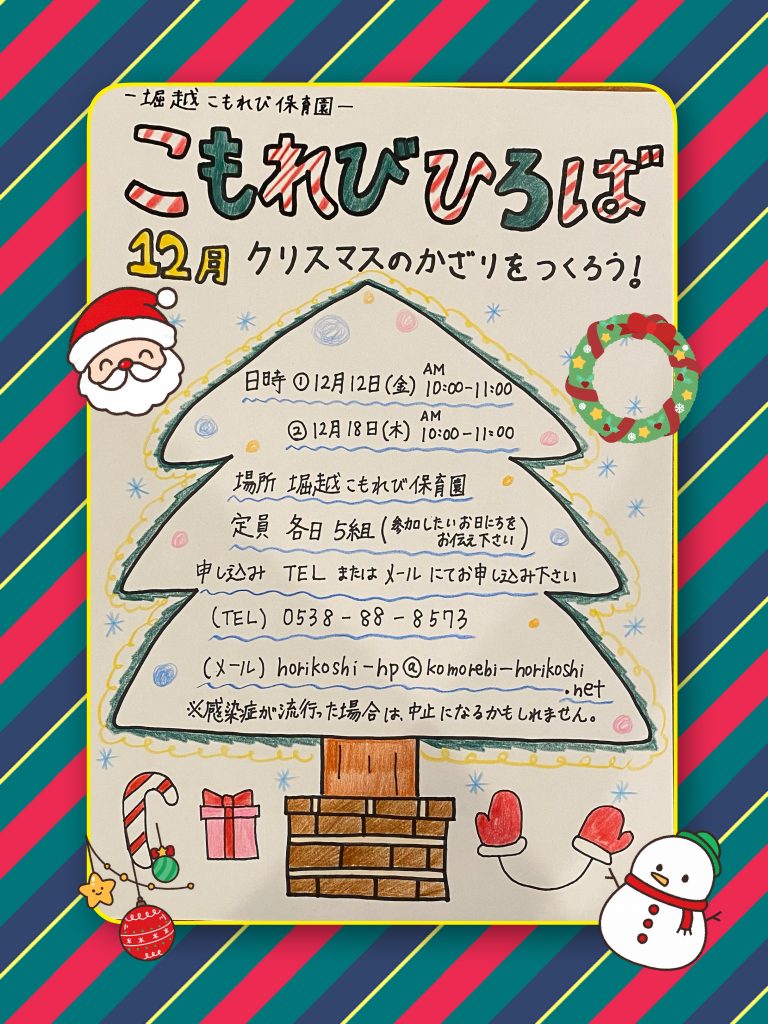 －堀越こもれび保育園－
こもれびひろば
12月 クリスマスのかざりをつくろう！
日時 ①12月12日(金) AM 10:00-11:00
②12月18日(木) AM 10:00-11:00
場所 堀越こもれび保育園
定員 各日5組(参加したいお日にちを
お伝え下さい)
申し込み TEL または メール にてお申し込み下さい
(TEL) 0538-88-8573
(メール) horikoshi-hp@komorebi-horikoshi
.net
※感染症が流行った場合は、中止になるかもしれません。